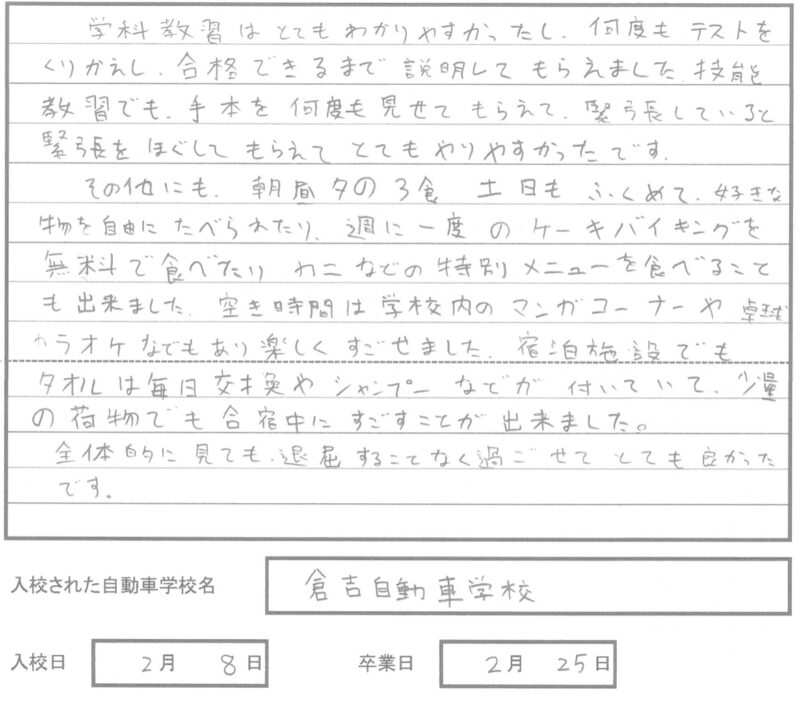 学科教習はとてもわかりやすかったし、何度もテストを
くりかえし、合格できるまで説明してもらえました。技能
教習でも、手本を何度も見せてもらえて、緊張していると
緊張をほぐしてもらえてとてもやりやすかったです。
その他にも、朝昼夕の3食 土日もふくめて、好きな
物を自由にたべられたり、週に一度のケーキバイキングを
無料で食べたり カニなどの特別メニューを食べること
も出来ました。空き時間は学校内のマンガコーナーや卓球
カラオケなでもあり楽しくすごせました。宿泊施設でも
タオルは毎日交換やシャンプーなどが付いていて、少量
の荷物でも合宿中にすごすことが出来ました。
全体的に見ても、退屈することなく過ごせてとても良かった
です。
入校された自動車学校名 倉吉自動車学校
入校日 2月 8日 卒業日 2月 25日